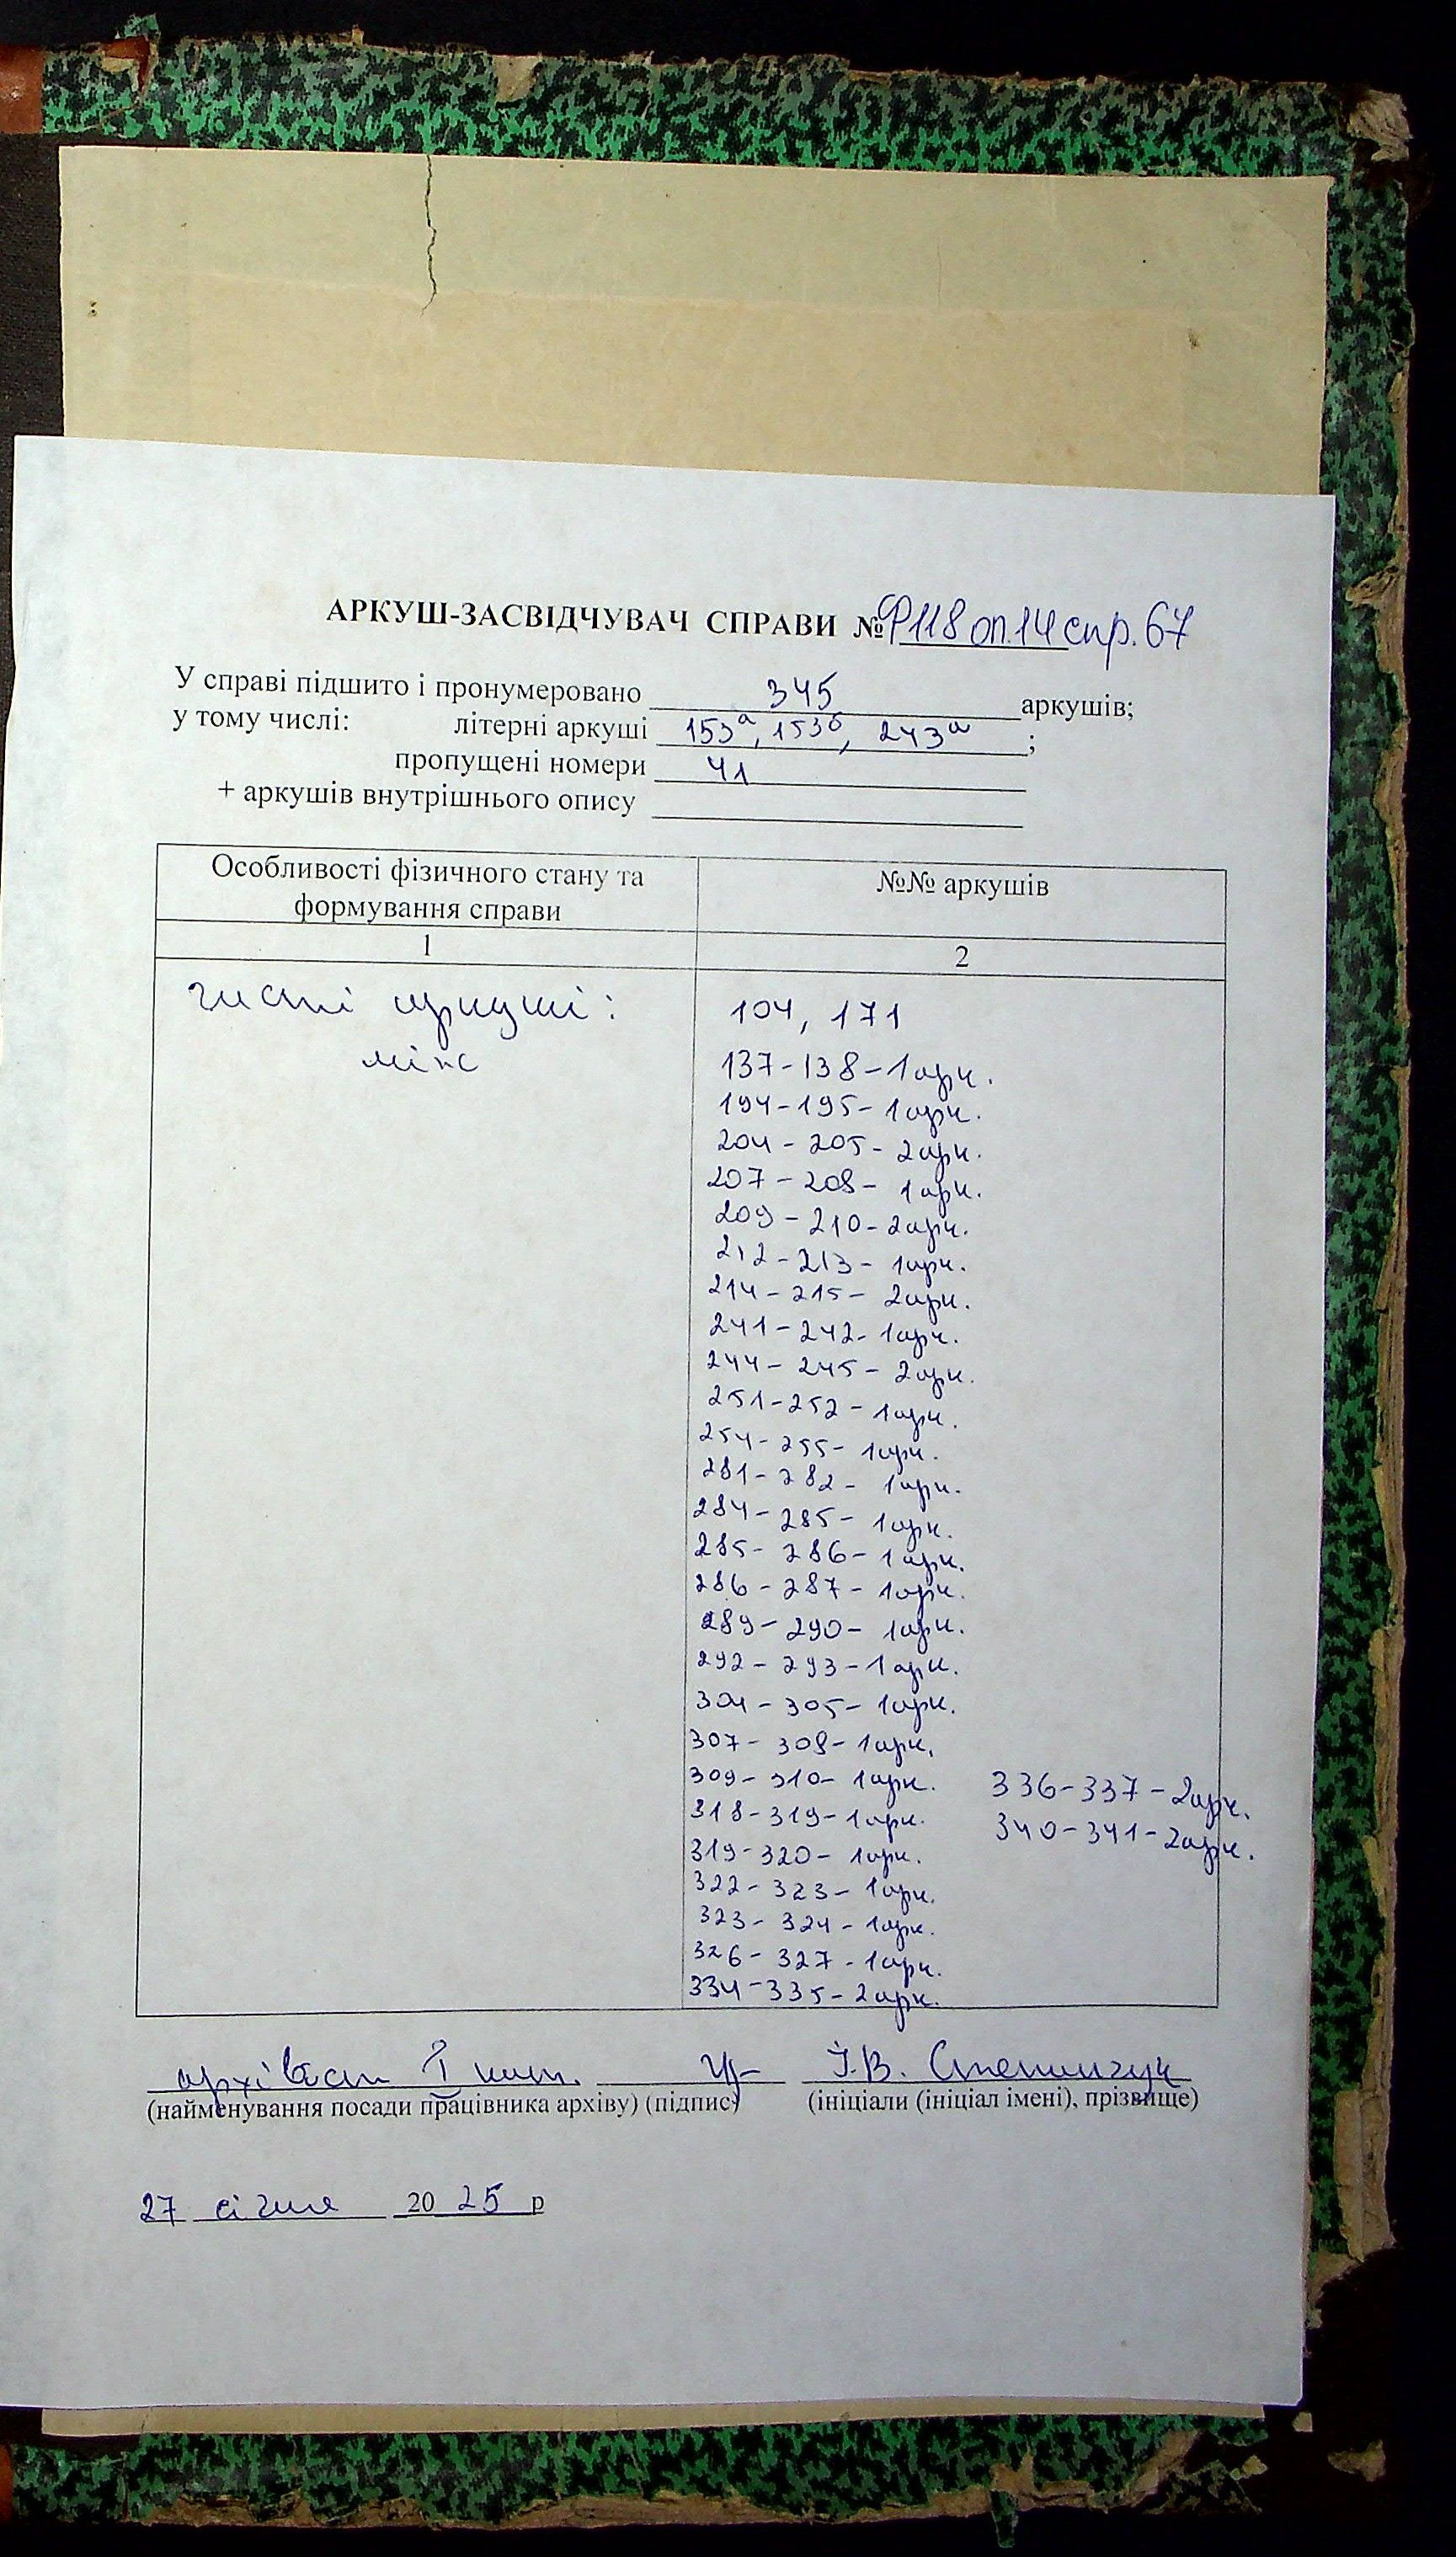 АРКУШ-ЗАСВІДЧУВАЧ СПРАВИ № Ф118 оп.14 спр.67
У справі підшито і пронумеровано 345 аркушів;
у тому числі: літерні аркуші 153а, 153б, 243а ;
пропущені номери 41
+ аркушів внутрішнього опису
Особливості фізичного стану та формування справи
№№ аркушів
1
2
чисті аркуші:
104, 171
між
137-138-1арк.
194-195-1арк.
204-205-2арк.
207-208-1арк.
209-210-2арк.
212-213-1арк.
214-215-2арк.
241-242-1арк.
244-245-2арк.
251-252-1арк.
254-255-1арк.
281-282-1арк.
284-285-1арк.
285-286-1арк.
286-287-1арк.
289-290-1арк.
292-293-1арк.
304-305-1арк.
307-308-1арк.
309-310-1арк. 336-337-2арк.
318-319-1арк. 340-341-2арк.
319-320-1арк.
322-323-1арк.
323-324-1арк.
326-327-1арк.
334-335-2арк.
архівіст І кат. І.В. Степанчук
(найменування посади працівника архіву) (підпис) (ініціали (ініціал імені), прізвище)
27 січня 2025 р